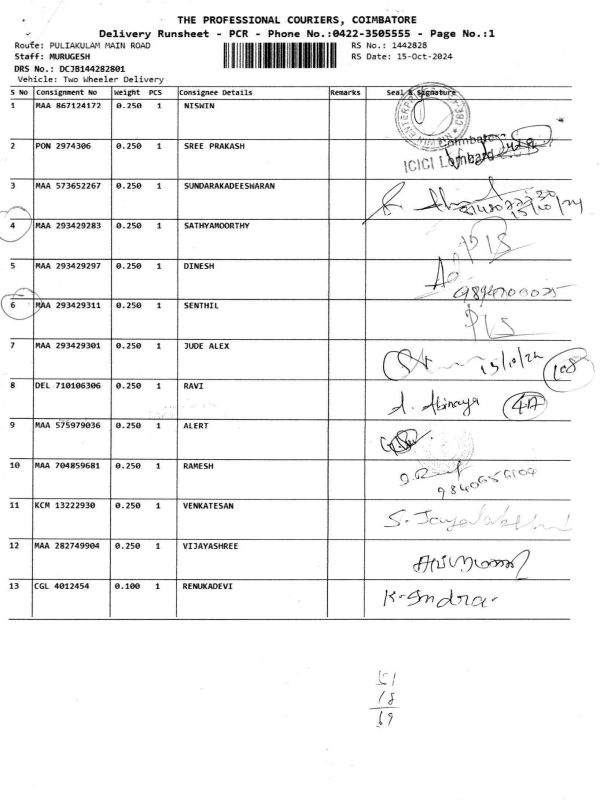 THE PROFESSIONAL COURIERS, COIMBATORE
Delivery Runsheet - PCR - Phone No.:0422-3505555 - Page No.:1
Route: PULIAKULAM MAIN ROAD RS No.: 1442828
Staff: MURUGESH RS Date: 15-Oct-2024
DRS No.: DCJB144282801
Vehicle: Two Wheeler Delivery
S No Consignment No Weight PCS Consignee Details Remarks Seal & Signature
1 MAA 867124172 0.250 1 NISWIN
2 PON 2974306 0.250 1 SREE PRAKASH Coimbatore
ICICI Lombard
3 MAA 573652267 0.250 1 SUNDARAKADEESHARAN
15/10/24
4 MAA 293429283 0.250 1 SATHYAMOORTHY
5 MAA 293429297 0.250 1 DINESH
6 MAA 293429311 0.250 1 SENTHIL
7 MAA 293429301 0.250 1 JUDE ALEX 15/10/24 108
8 DEL 710106306 0.250 1 RAVI A. Abinaya
9 MAA 575979036 0.250 1 ALERT
10 MAA 704859681 0.250 1 RAMESH
11 KCM 13222930 0.250 1 VENKATESAN
12 MAA 282749904 0.250 1 VIJAYASHREE
13 CGL 4012454 0.100 1 RENUKADEVI K. Indra
51
18
69